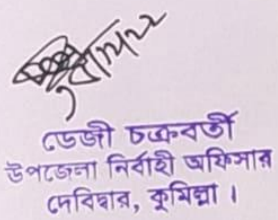 ডেজী চক্রবর্তী
উপজেলা নির্বাহী অফিসার
দেবিদ্বার, কুমিল্লা ।